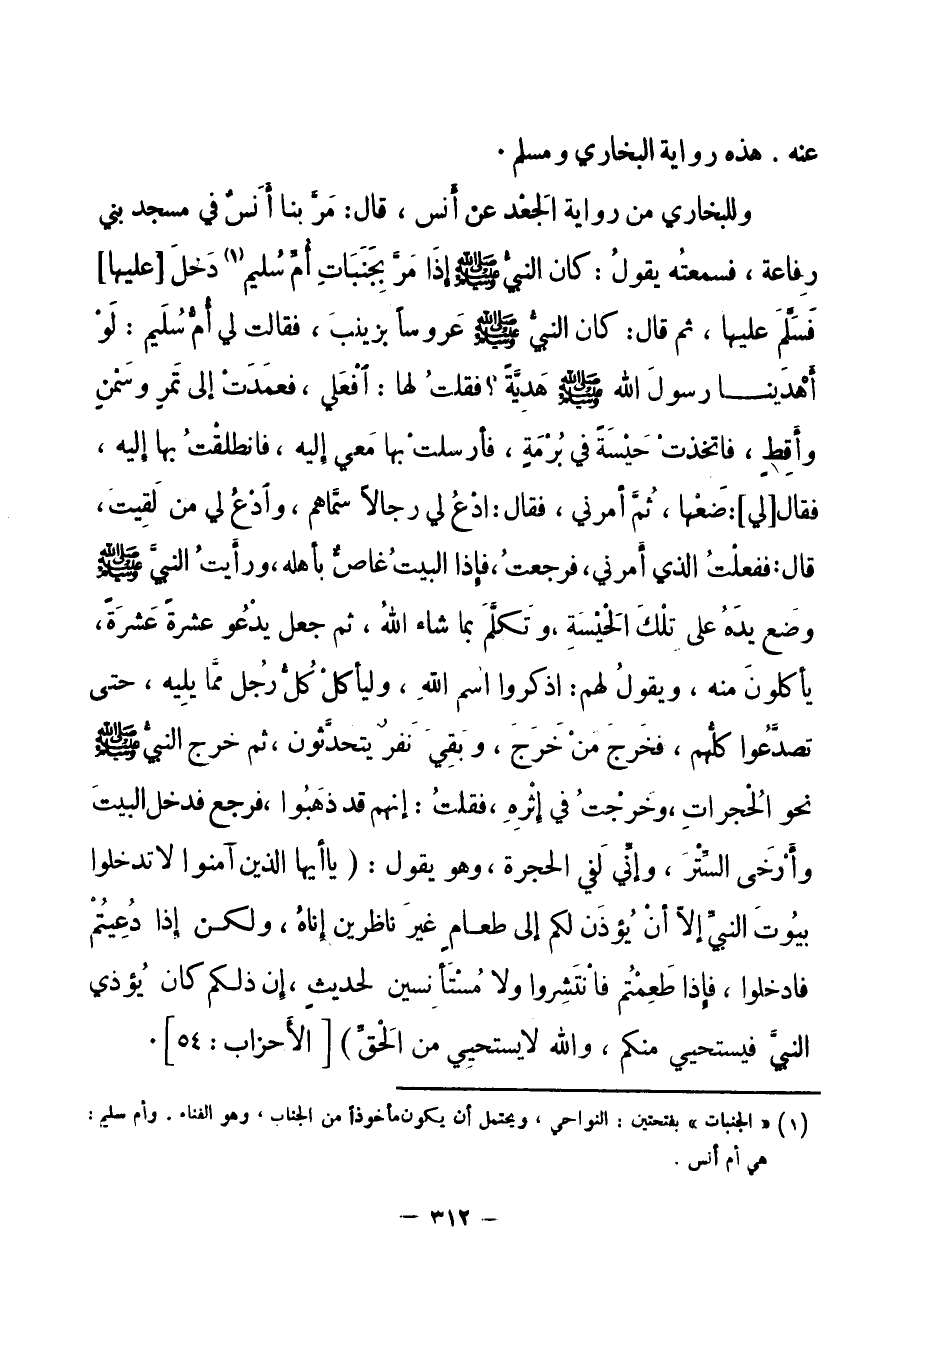 عنه . هذه رواية البخاري ومسلم .
وللبخاري من رواية الجَعْد عن أَنس ، قال: مَرَّ بنا أَنَسٌ في مسجد بني
رِفاعة ، فسمعتُه يقولُ : كان النبيُّ ﷺ إذَا مَرَّ بِجَنَبَاتِ أُمِّ سُليم(١) دَخلَ [عليها]
فَسَلَّمَ عليها ، ثم قال: كان النبيُّ ﷺ عَروساً بزينبَ ، فقالت لي أُمُّ سُلَيم : لَوْ
أَهْدَينــا رسولَ الله ﷺ هَدِيَّةً ؟ فقلتُ لها : اَفْعَلي ، فعمَدَتْ إلى تَمرٍ وسَمْنٍ
وأَقِطٍ ، فاتخذتْ حَيْسَةً في بُرْمَةٍ ، فأرسلتْ بها مَعي إليه ، فانطلقْتُ بها إليه ،
فقال[لي]:ضَعْها ، ثُمَّ أمرني ، فقال: ادْعُ لي رجالاً سمَّاهم ، وادْعُ لي من لَقِيتَ،
قال: ففعلْتُ الذي أَمرني، فرجعتُ، فإذا البيتُ غاصٌّ بأهله، ورأيتُ النبيَّ ﷺ
وضَع يدَهُ على تِلْكَ الحَيْسَةِ ،وتَكلَّمَ بما شاء اللهُ ، ثم جعل يدْعُو عشرةً عَشرَةً،
يأكلونَ منه ، ويقولُ لهم: اذكروا اسْم اللهِ ، وليأكلْ كُلُّ رُجل ممَّا يلِيه ، حتى
تصدَّعُوا كلُّهم ، فخَرجَ مَنْ خَرَجَ ، وبَقِيَ نَفرٌ يتحدَّثون ،ثم خرج النبيُّ ﷺ
نحو الحُجراتِ ،وخَرجْتُ في إثْرِهِ ،فقلتُ : إنهم قد ذهَبُوا ،فرجع فدخل البيتَ
وأَرْخَى السِّتْرَ ، وإنِّي لَفي الحجرة ،وهو يقول : ( ياأيها الذين آمنوا لاتدخلوا
بيُوتَ النبيِّ إلاّ أنْ يُؤذَن لكم إلى طعـامٍ غيرَ ناظرين إناهُ ، ولكـن إذا دُعِيتُمْ
فادخلوا ، فإذا طَعِمْتُم فانْتَشِروا ولا مُسْتَأنسين لحديثٍ ،إن ذلكم كان يُؤذي
النبيَّ فيستحيي منكم ، والله لايستحيِي من الحَقِّ ) [ الأَحزاب : ٥٤] .
(١) « الجنبات » بفتحتين : النواحي ، ويحتمل أن يكون مأخوذاً من الجناب ، وهو الفناء . وأم سليم :
هي أم أنس .
– ٣١٢ –